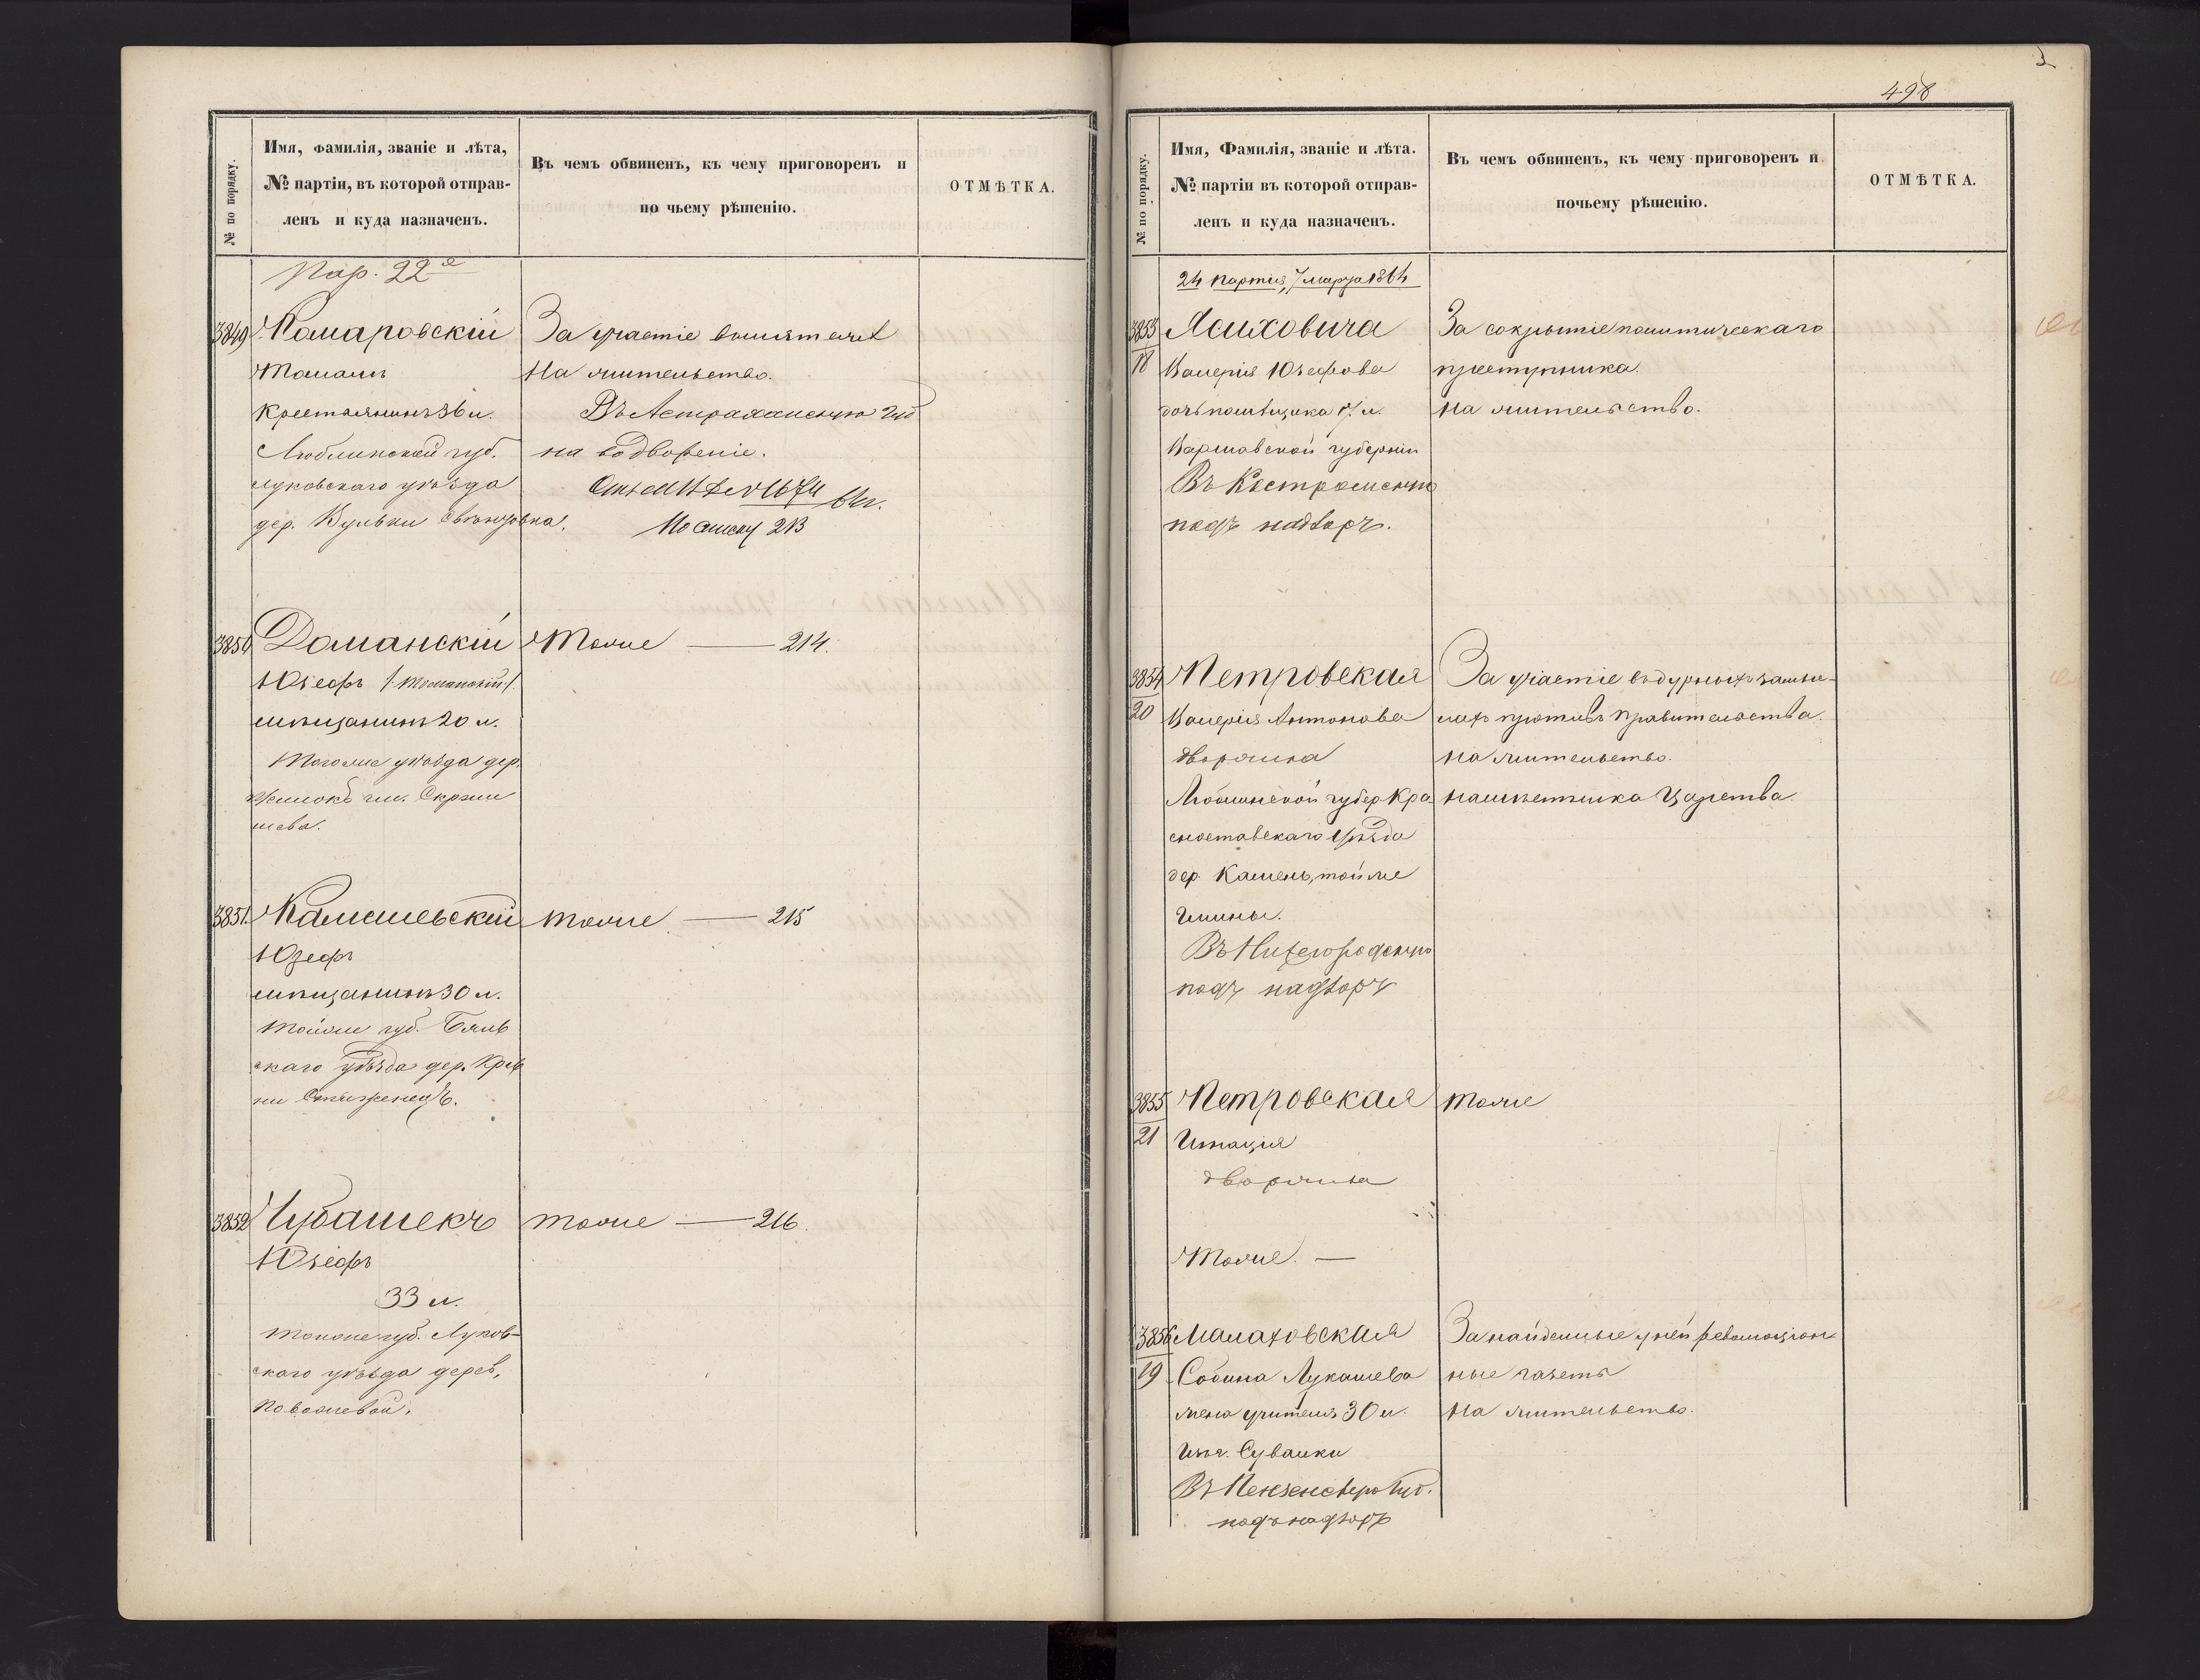 № по порядку.
Имя, фамилія, званіе и лѣта,
№ партіи, въ которой отправ-
ленъ и куда назначенъ.
Въ чемъ обвиненъ, къ чему приговоренъ и
по чьему рѣшенію.
ОТМѢТКА.
Пар. 22я
3849
Комаровскій
Томашъ
Крестьянинъ 36 л.
Люблинской губ.
Луковскаго уѣзда
дер. Вульки
За участіе въ мятежѣ
На жительство.
Въ Астраханскую губ
на водвореніе.
По списку 213
3850
Доманскій
Юзефъ /Томанскій/
мѣщанинъ 20 л.
Тогоже уѣзда дер.
гм. Скржи
шева.
Тоже — 214.
3851.
Юзефъ
мѣщанинъ 30 л.
Тойже губ. Бяль
скаго уѣзда дер.
Тоже — 215
3852
Чубашекъ
Юзефъ
33 л.
Тойже губ. Луков-
скаго уѣзда дерев.
Тоже — 216.
3
498
№ по порядку.
Имя, Фамилія, званіе и лѣта.
№ партіи въ которой отправ-
ленъ и куда назначенъ.
Въ чемъ обвиненъ, къ чему приговоренъ и
почьему рѣшенію.
ОТМѢТКА.
24 партія, 7 марта 1864
3853
18
Валерія Юзефова
дочь помѣщика 17 л.
Варшавской губерніи
Въ Костромскую
подъ надзоръ.
За сокрытіе политическаго
преступника.
На жительство.
3854
20
Петровская
Валерія Антонова
дворянка
Люблинской губер Кра
сноставскаго уѣзда
дер. Камень, тойже
гмины.
Въ Нижегородскую
подъ надзоръ
За участіе въ дурныхъ замы-
лахъ противъ правительства.
На жительство.
намѣстника Царства
3855
21
Петровская
Игнація
дворянка
Тоже. —
Тоже
3856
19
Малаховская
Сабина Лукашева
жена учителя 30 л.
Сувалки
Въ Пензенскую губ.
подъ надзоръ
За найденные у ней революціон
ные газеты
На жительство.